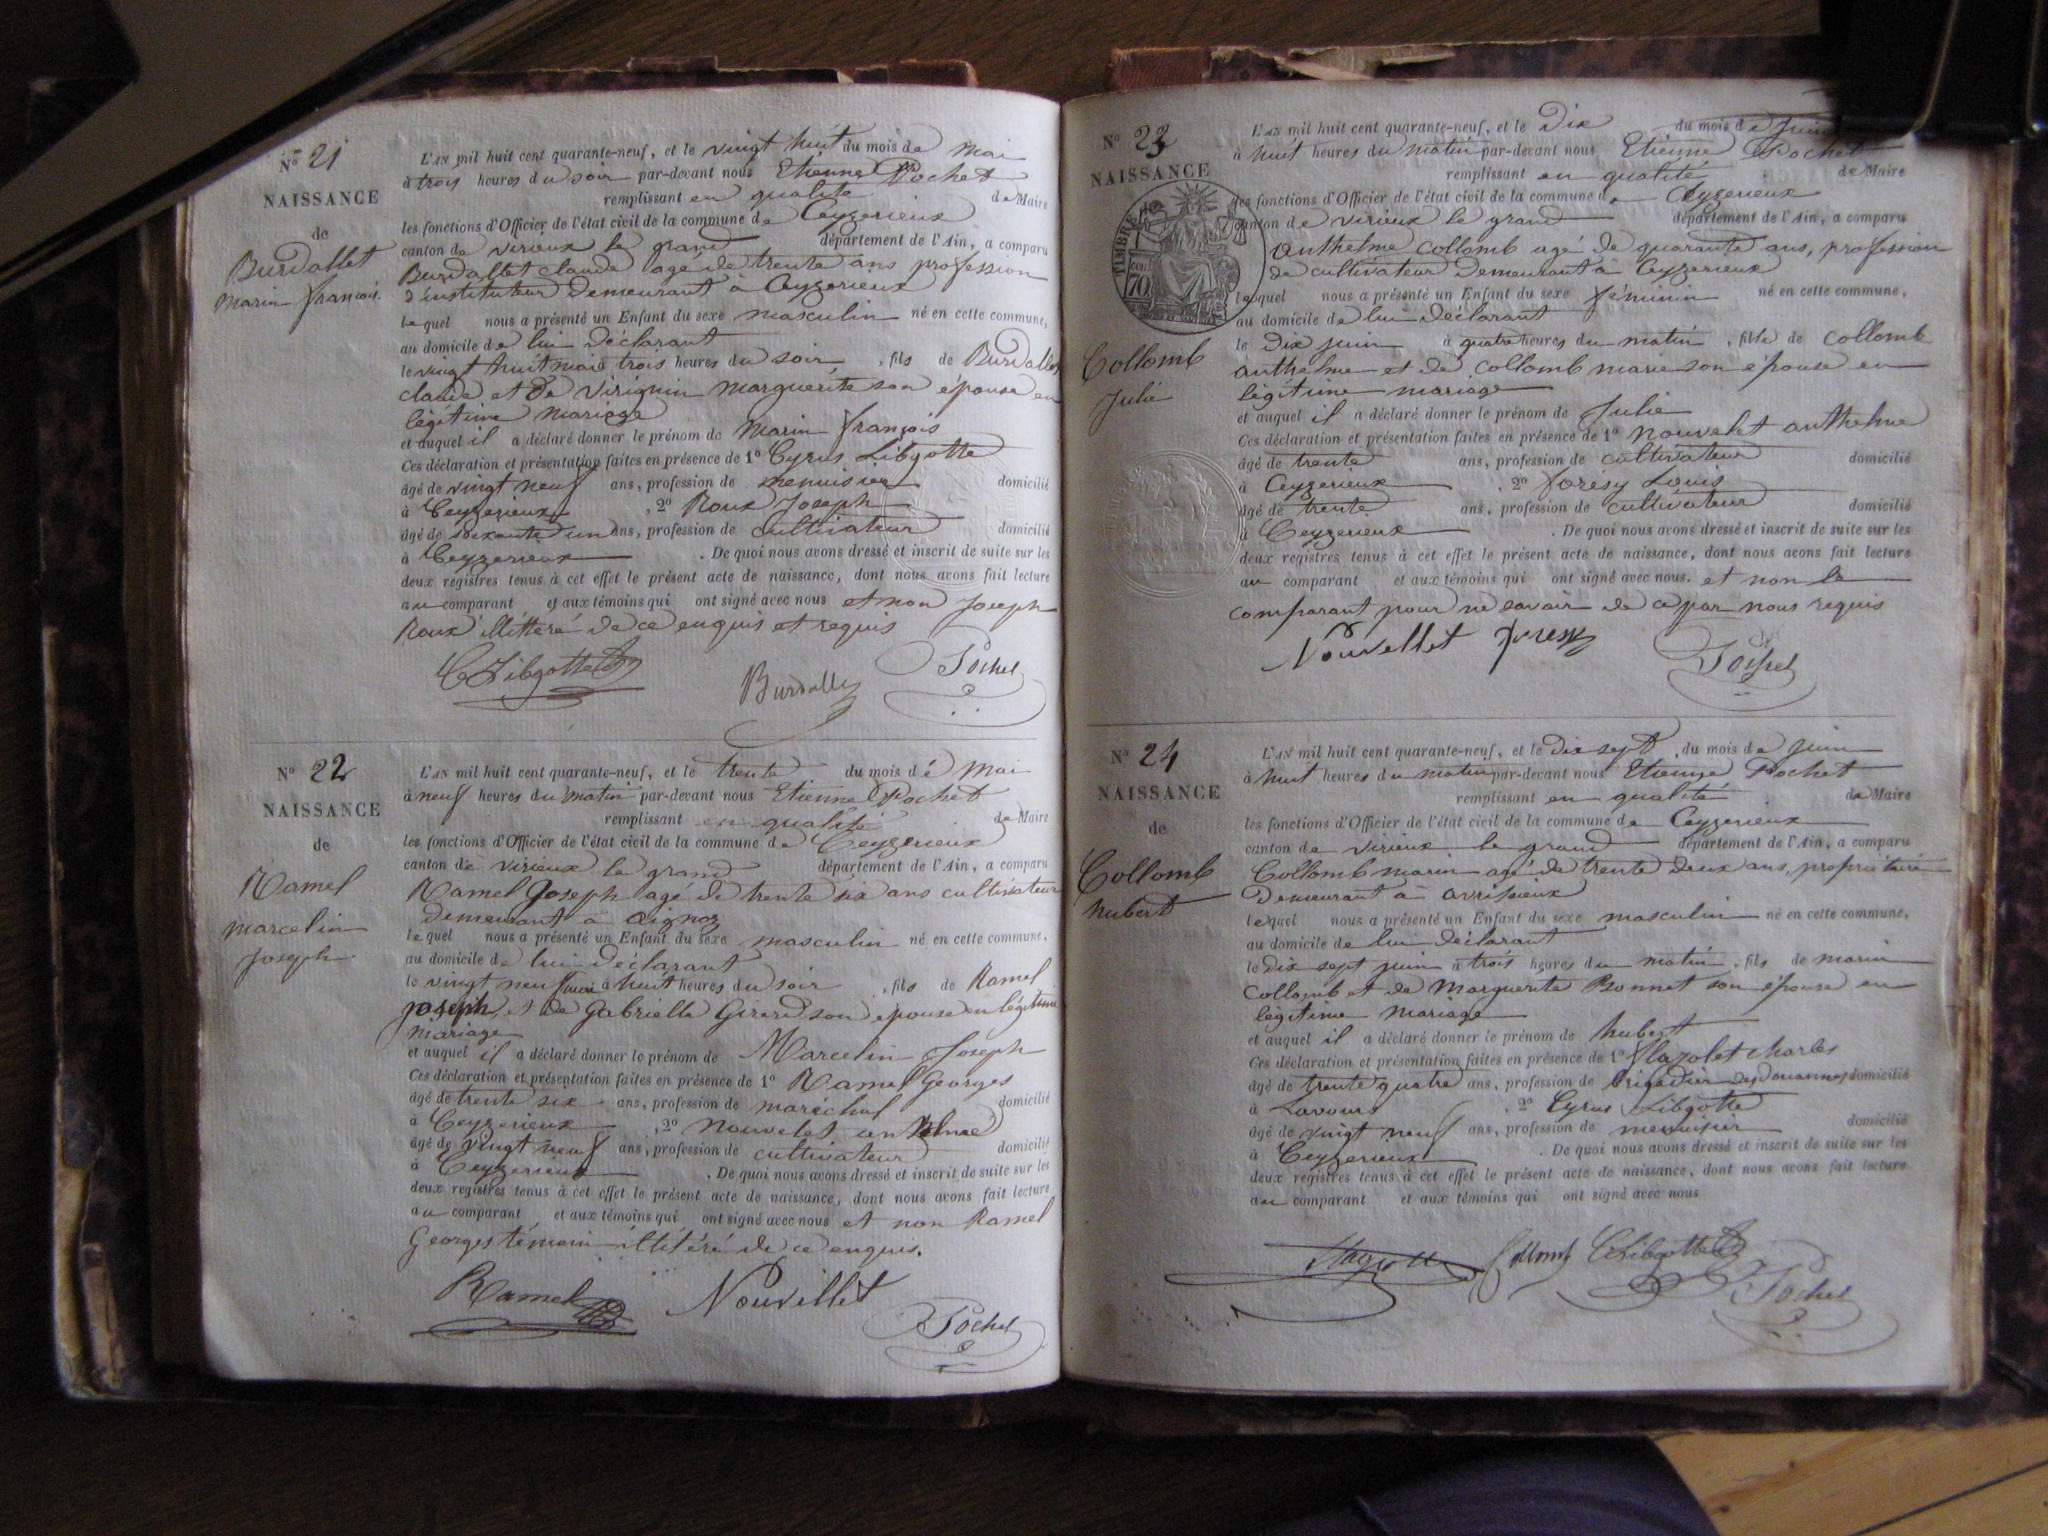 N° 21
NAISSANCE
de
Burdallet
Marin françois.
L'AN mil huit cent quarante-neuf, et le vingt huit du mois de Mai
à trois heures du soir par-devant nous Etienne Pochet
remplissant en qualité de Maire
les fonctions d'Officier de l'état civil de la commune de Ceyzerieux
canton de virieux le grand département de l'Ain, a comparu
Burdallet claude agé de trente ans profession
d'instituteur demeurant à Ceyzerieux
lequel nous a présenté un Enfant du sexe masculin né en cette commune,
au domicile de lui déclarant
le vingt huit mai à trois heures du soir, fils de Burdallet
claude et de Virignin marguerite son épouse en
légitime mariage
et auquel il a déclaré donner le prénom de Marin françois
Ces déclaration et présentation faites en présence de 1° Cyrus Libgotte
âgé de vingt neuf ans, profession de menuisier domicilié
à Ceyzerieux, 2° Roux Joseph
âgé de soixante un ans, profession de cultivateur domicilié
à Ceyzerieux. De quoi nous avons dressé et inscrit de suite sur les
deux registres tenus à cet effet le présent acte de naissance, dont nous avons fait lecture
au comparant et aux témoins qui ont signé avec nous et non Joseph
Roux illittéré de ce enquis et requis
C Libgotte Burdallet Pochet
N° 22
NAISSANCE
de
Ramel
marcelin
Joseph
L'AN mil huit cent quarante-neuf, et le trente du mois de Mai
à neuf heures du matin par-devant nous Etienne Pochet
remplissant en qualité de Maire
les fonctions d'Officier de l'état civil de la commune de Ceyzerieux
canton de virieux le grand département de l'Ain, a comparu
Ramel Joseph agé de trente six ans cultivateur
demeurant à aignoz
lequel nous a présenté un Enfant du sexe masculin né en cette commune,
au domicile de lui déclarant
le vingt neuf mai à huit heures du soir, fils de Ramel
joseph et de Gabrielle Girerd son épouse en légitime
mariage
et auquel il a déclaré donner le prénom de Marcelin Joseph
Ces déclaration et présentation faites en présence de 1° Ramel Georges
âgé de trente six ans, profession de maréchal domicilié
à Ceyzerieux, 2° nouvelet anthelme
âgé de vingt neuf ans, profession de cultivateur domicilié
à Ceyzerieux. De quoi nous avons dressé et inscrit de suite sur les
deux registres tenus à cet effet le présent acte de naissance, dont nous avons fait lecture
au comparant et aux témoins qui ont signé avec nous et non Ramel
Georges témoin illitéré de ce enquis.
Ramel Nouvellet Pochet
N° 23
NAISSANCE
TIMBRE
70 cent
Collomb
Julie
L'AN mil huit cent quarante-neuf, et le Dix du mois de Juin
à huit heures du matin par-devant nous Etienne Pochet
remplissant en qualité de Maire
les fonctions d'Officier de l'état civil de la commune de Ceyzerieux
canton de virieux le grand département de l'Ain, a comparu
anthelme Collomb agé de quarante ans, profession
de cultivateur demeurant à Ceyzerieux
lequel nous a présenté un Enfant du sexe féminin né en cette commune,
au domicile de lui déclarant
le dix juin à quatre heures du matin, fille de collomb
anthelme et de collomb marie son épouse en
légitime mariage
et auquel il a déclaré donner le prénom de Julie
Ces déclaration et présentation faites en présence de 1° nouvelet anthelme
âgé de trente ans, profession de cultivateur domicilié
à Ceyzerieux, 2° foresy Louis
âgé de trente ans, profession de cultivateur domicilié
à Ceyzerieux. De quoi nous avons dressé et inscrit de suite sur les
deux registres tenus à cet effet le présent acte de naissance, dont nous avons fait lecture
au comparant et aux témoins qui ont signé avec nous. et non le
comparant pour ne savoir de ce par nous requis
Nouvellet Pochet
N° 24
NAISSANCE
de
Collomb
hubert
L'AN mil huit cent quarante-neuf, et le dix sept du mois de juin
à huit heures du matin par-devant nous Etienne Pochet
remplissant en qualité de Maire
les fonctions d'Officier de l'état civil de la commune de Ceyzerieux
canton de virieux le grand département de l'Ain, a comparu
Collomb marin agé de trente deux ans, propriétaire
demeurant à avrissieux
lequel nous a présenté un Enfant du sexe masculin né en cette commune,
au domicile de lui déclarant
le dix sept juin à trois heures du matin, fils de marin
collomb et de Marguerite Bonnet son épouse en
légitime mariage
et auquel il a déclaré donner le prénom de hubert
Ces déclaration et présentation faites en présence de 1° flazolet charles
âgé de trente quatre ans, profession de brigadier des douannes domicilié
à Lavours, 2° Cyrus Libgotte
âgé de vingt neuf ans, profession de menuisier domicilié
à Ceyzerieux. De quoi nous avons dressé et inscrit de suite sur les
deux registres tenus à cet effet le présent acte de naissance, dont nous avons fait lecture
au comparant et aux témoins qui ont signé avec nous
Collomb C Libgotte Pochet